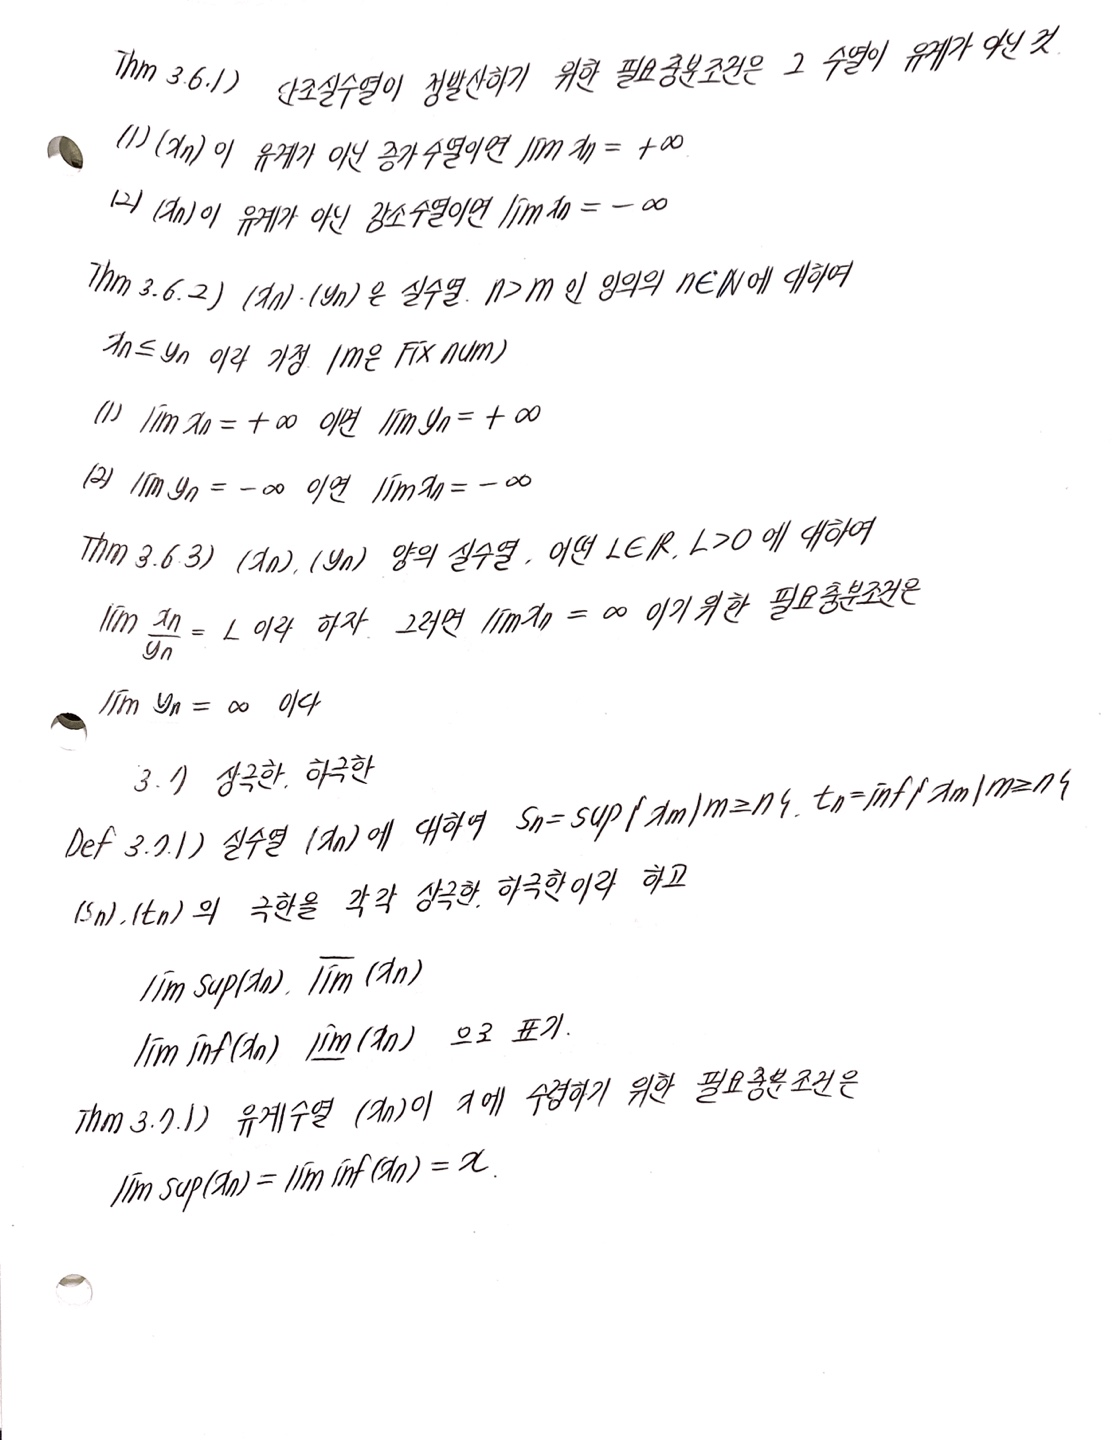 Thm 3.6.1) 단조실수열이 정발산하기 위한 필요충분조건은 그 수열이 유계가 아닌 것.
(1) (xn)이 유계가 아닌 증가수열이면 lim xn = +∞
(2) (xn)이 유계가 아닌 감소수열이면 lim xn = -∞
Thm 3.6.2) (xn), (yn)은 실수열. n>m 인 임의의 n∈ℕ에 대하여
xn ≤ yn 이라 가정 (m은 Fix num)
(1) lim xn = +∞ 이면 lim yn = +∞
(2) lim yn = -∞ 이면 lim xn = -∞
Thm 3.6.3) (xn), (yn) 양의 실수열. 어떤 L∈ℝ, L>0 에 대하여
lim xn/yn = L 이라 하자. 그러면 lim xn = ∞ 이기 위한 필요충분조건은
lim yn = ∞ 이다
3.7 상극한, 하극한
Def 3.7.1) 실수열 (xn)에 대하여 Sn = sup{xm|m≥n}, tn = inf{xm|m≥n}
(Sn), (tn)의 극한을 각각 상극한, 하극한이라 하고
lim sup(xn), l̅i̅m̅ (xn)
lim inf(xn) l̲i̲m̲ (xn) 으로 표기.
Thm 3.7.1) 유계수열 (xn)이 x에 수렴하기 위한 필요충분조건은
lim sup(xn) = lim inf(xn) = x.